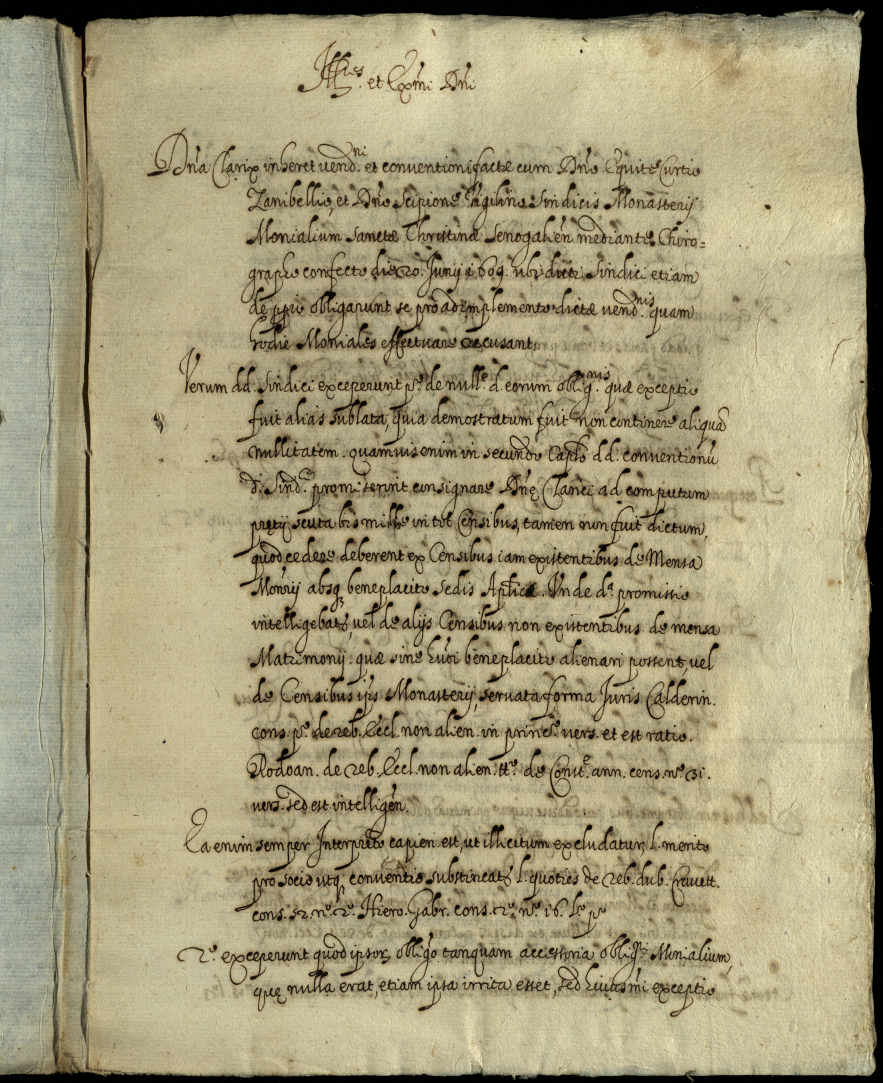 Ill.es et Exmi Dni
Dna Clarix inheret vend.ni et conventioni factæ cum Dno Equite Curtio
Zanibellio, et Dno Scipione Vigilino Sindicis Monasterij
Monialium Sanctæ Christinæ Senogallien mediante Chiro=
grapho confecto die 20. Junij 1609. ubi dicti Sindici etiam
de ppio obligarunt se pro adimplemento dictæ vend.nis quam
hodie Moniales effectuare recusant.
Verum dd. Sindici exceperunt po. de null.e d. eorum oblig.nis quæ exceptio
fuit alias sublata, quia demostratum fuit non continere aliquā
nullitatem. quamvis enim in secundo Caplo dd. conventionū
d. Sind.ci promiserint consignare Dnę Clarici ad computum
prętij scuta bis mille in tot Censibus, tamen non fuit dictum,
quod cedere deberent ex Censibus iam existentibus de Mensa
Monrij absq beneplacito Sedis Aplicæ. Unde da. promissio
intelligebat, vel de alijs Censibus non existentibus de mensa
Matrimonij. quæ sine beneplacito alienari possent, vel
de Censibus ipis Monasterij, servata forma Juris Calderin.
cons. po. de reb. Eccl. non alien. in princo. vers. et est ratio.
Rodoan. de reb. Eccl. non alien. tto. de Const.e ann. cens. no. 31.
vers. sed est intelligen.
Ea enim semper Interpreto capien. est, ut illicitum excludatur, l. merito
pro socio utq conventio substineat l. quoties de reb. dub. Cravett.
cons. 52. no. 2o. Hiero. Gabr. cons. no. 16. po
2o. exceperunt quod ipsor obligo tanquam accessoria oblig.is Monialium,
quę nulla erat, etiam ipsa irrita esset, sed huiusmi exceptio